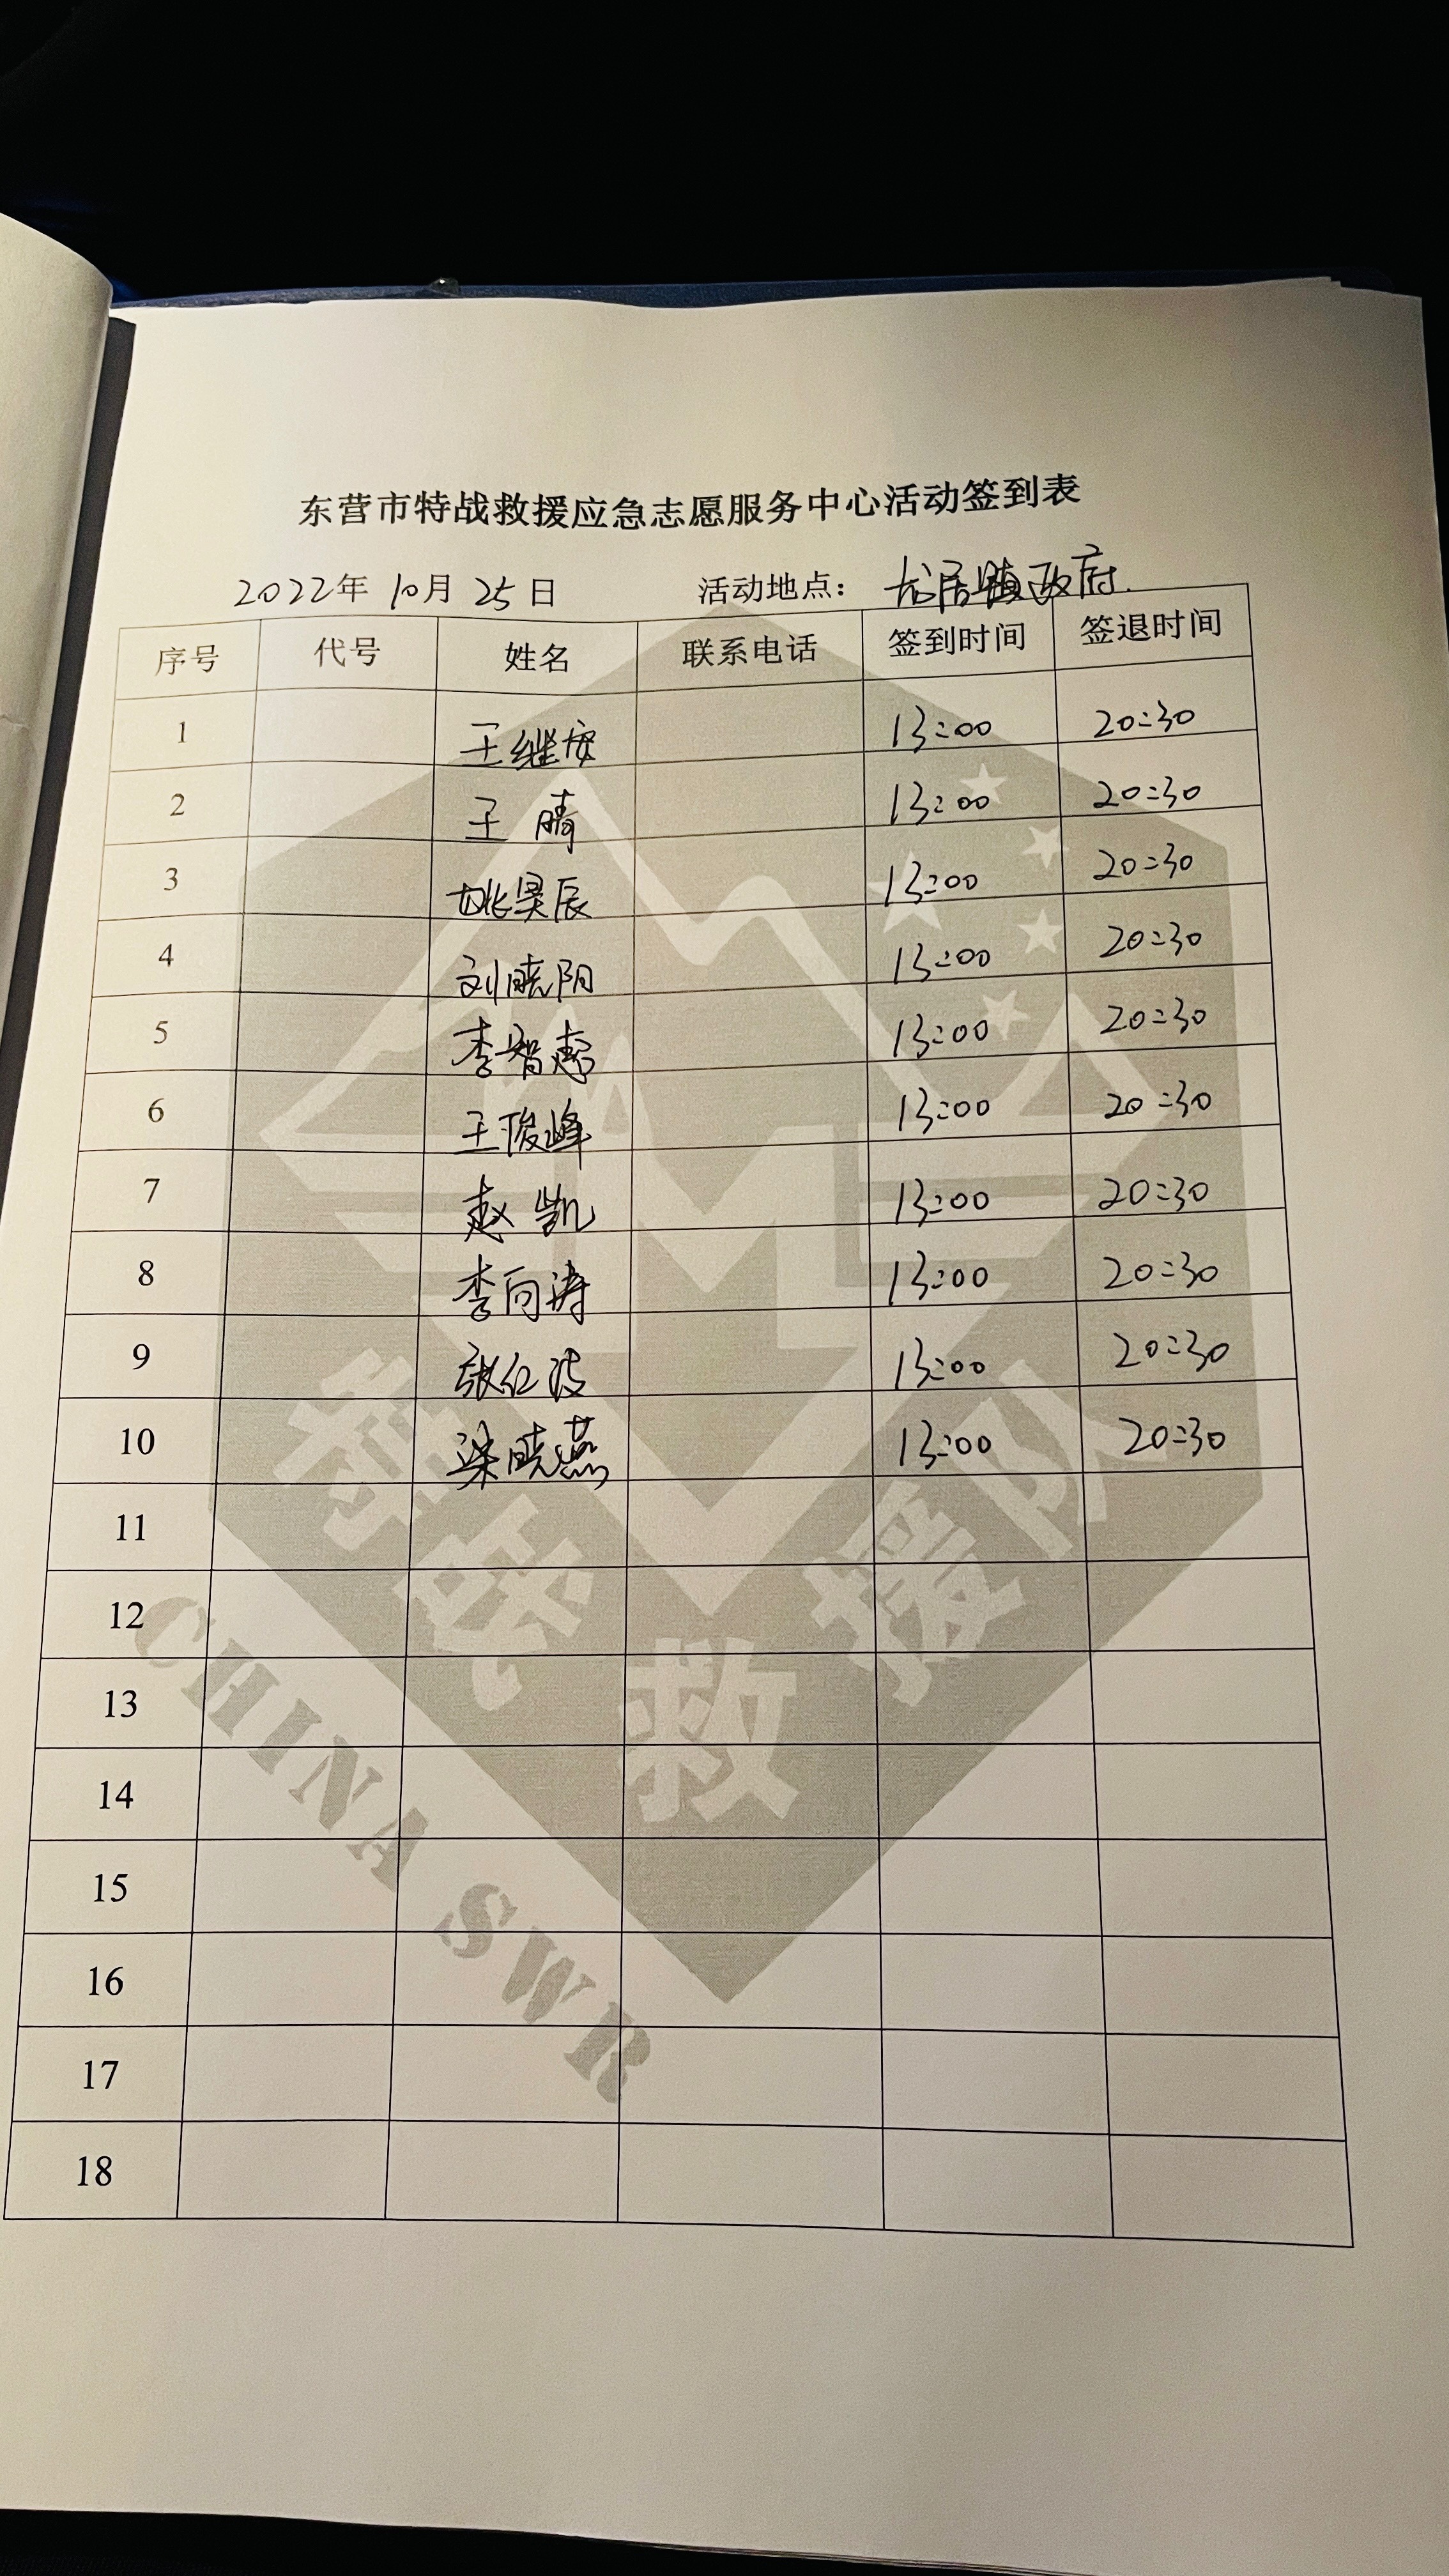 东营市特战救援应急志愿服务中心活动签到表
2022年 10月 25日 活动地点： 龙居镇政府.
序号 代号 姓名 联系电话 签到时间 签退时间
1 王继安 13:00 20:30
2 王晴 13:00 20:30
3 姚昊辰 13:00 20:30
4 刘晓阳 13:00 20:30
5 李智慧 13:00 20:30
6 王俊峰 13:00 20:30
7 赵凯 13:00 20:30
8 李向涛 13:00 20:30
9 张仁波 13:00 20:30
10 梁晓燕 13:00 20:30
11
12
13
14
15
16
17
18
特战救援队
CHINA SWR